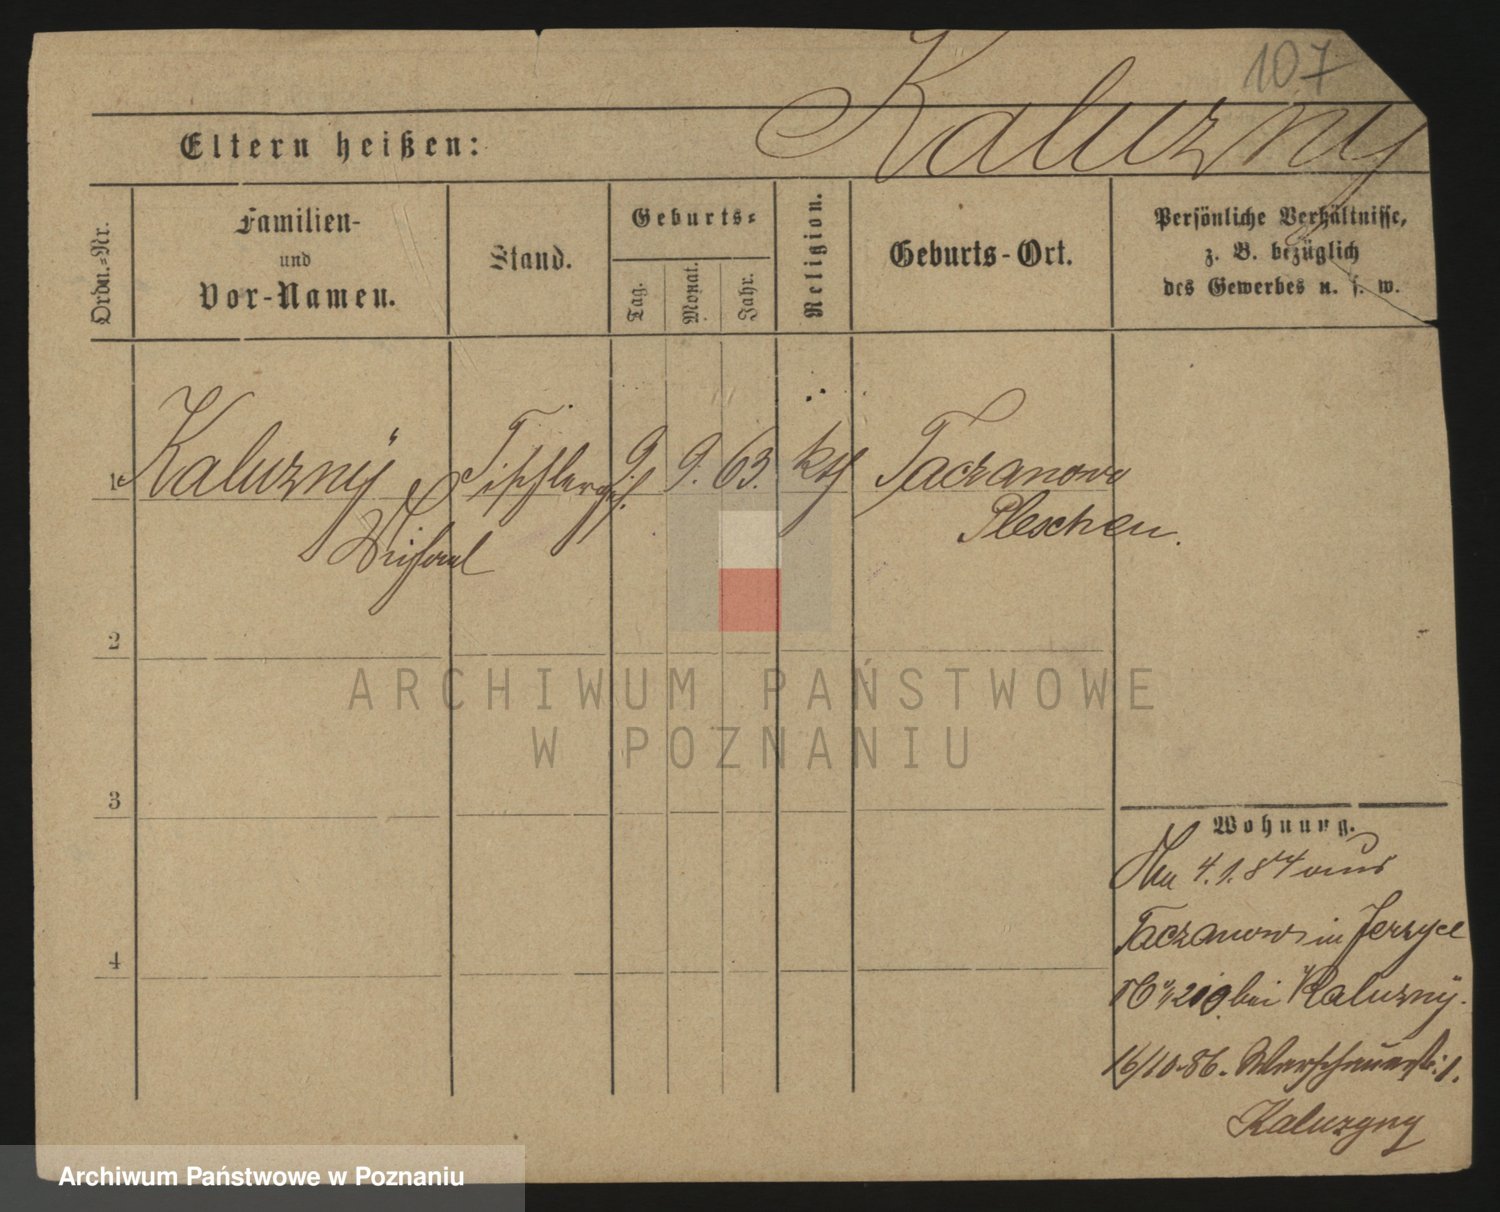 107
Kaluzny
Eltern heißen:
Ordn.-Nr.
Familien-
und
Vor-Namen.
Stand.
Geburts-
Tag.
Monat.
Jahr.
Religion.
Geburts-Ort.
Persönliche Verhältnisse,
z. B. bezüglich
des Gewerbes u. s. w.
1 Kaluzny Tischlerges. 9. 9. 63. kth Taczanowo
Pleschen.
2
3
4
ARCHIWUM PAŃSTWOWE
W POZNANIU
Wohnung.
4.1.84 aus
Taczanowo in Jerzyce
bei Kaluzny.
16/10.86. Warschauerstr. 1.
Kaluzyny
Archiwum Państwowe w Poznaniu